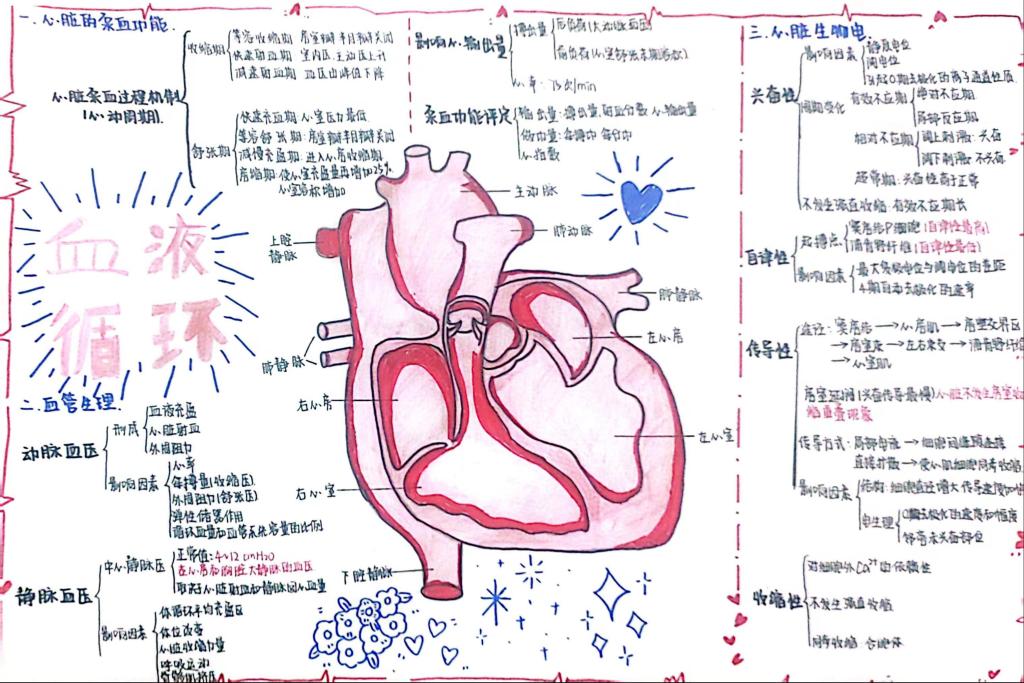 一.心脏的泵血功能.
心脏泵血过程机制
(心动周期).
收缩期
等容收缩期 房室瓣半月瓣关闭
快速射血期 室内压.主动压上升
减慢射血期 血压由峰值下降
舒张期
快速充盈期 心室压力最低.
等容舒张期:房室瓣半月瓣关闭
减慢充盈期:进入心房收缩期
房缩期:使心室充盈量再增加25%
心室容积增加
影响心输出量
搏出量
后负荷(大动脉血压)
前负荷(心室舒张末期容积)
心率:75次/min
泵血功能评定
输出量:搏出量.射血分数.心输出量
做功量:每搏功 每分功
心指数
血液
循环
上腔
静脉
主动脉
肺动脉
肺静脉
左心房
肺静脉
右心房
左心室
右心室
下腔静脉
二.血管生理.
动脉血压
形成
血液充盈
心脏射血
外周阻力
影响因素
心率
每搏量(收缩压)
外周阻力(舒张压)
弹性储器作用
循环血量和血管系统容量的比例
静脉血压
中心静脉压
正常值:4~12cmH2O
右心房和胸腔大静脉的血压
取决于心脏射血和静脉回心血量
影响因素
体循环平均充盈压
体位改变
心脏收缩力量
呼吸运动
骨骼肌挤压
三.心脏生物电
兴奋性
影响因素
静息电位
阈电位
引起0期去极化的离子通道性质
周期变化
有效不应期
绝对不应期
局部反应期
相对不应期
阈上刺激:兴奋
阈下刺激:不兴奋
超常期:兴奋性高于正常
不发生强直收缩:有效不应期长
自律性
起搏点
窦房结P细胞(自律性最高)
浦肯野纤维(自律性最低)
影响因素
最大复极电位与阈电位的差距
4期自动去极化的速率
传导性
途径:窦房结→心房肌→房室交界区
→房室束→左右束支→浦肯野纤维
→心室肌
房室延搁(兴奋传导最慢)心脏不发生房室收
缩重叠现象
传导方式:局部电流→细胞间缝隙连接
直接扩散→使心肌细胞同步收缩
影响因素
结构:细胞直径增大传导速度加快
电生理
0期去极化的速度和幅度
邻旁未兴奋部位
收缩性
对细胞外Ca²⁺的依赖性
不发生强直收缩
同步收缩:合胞体